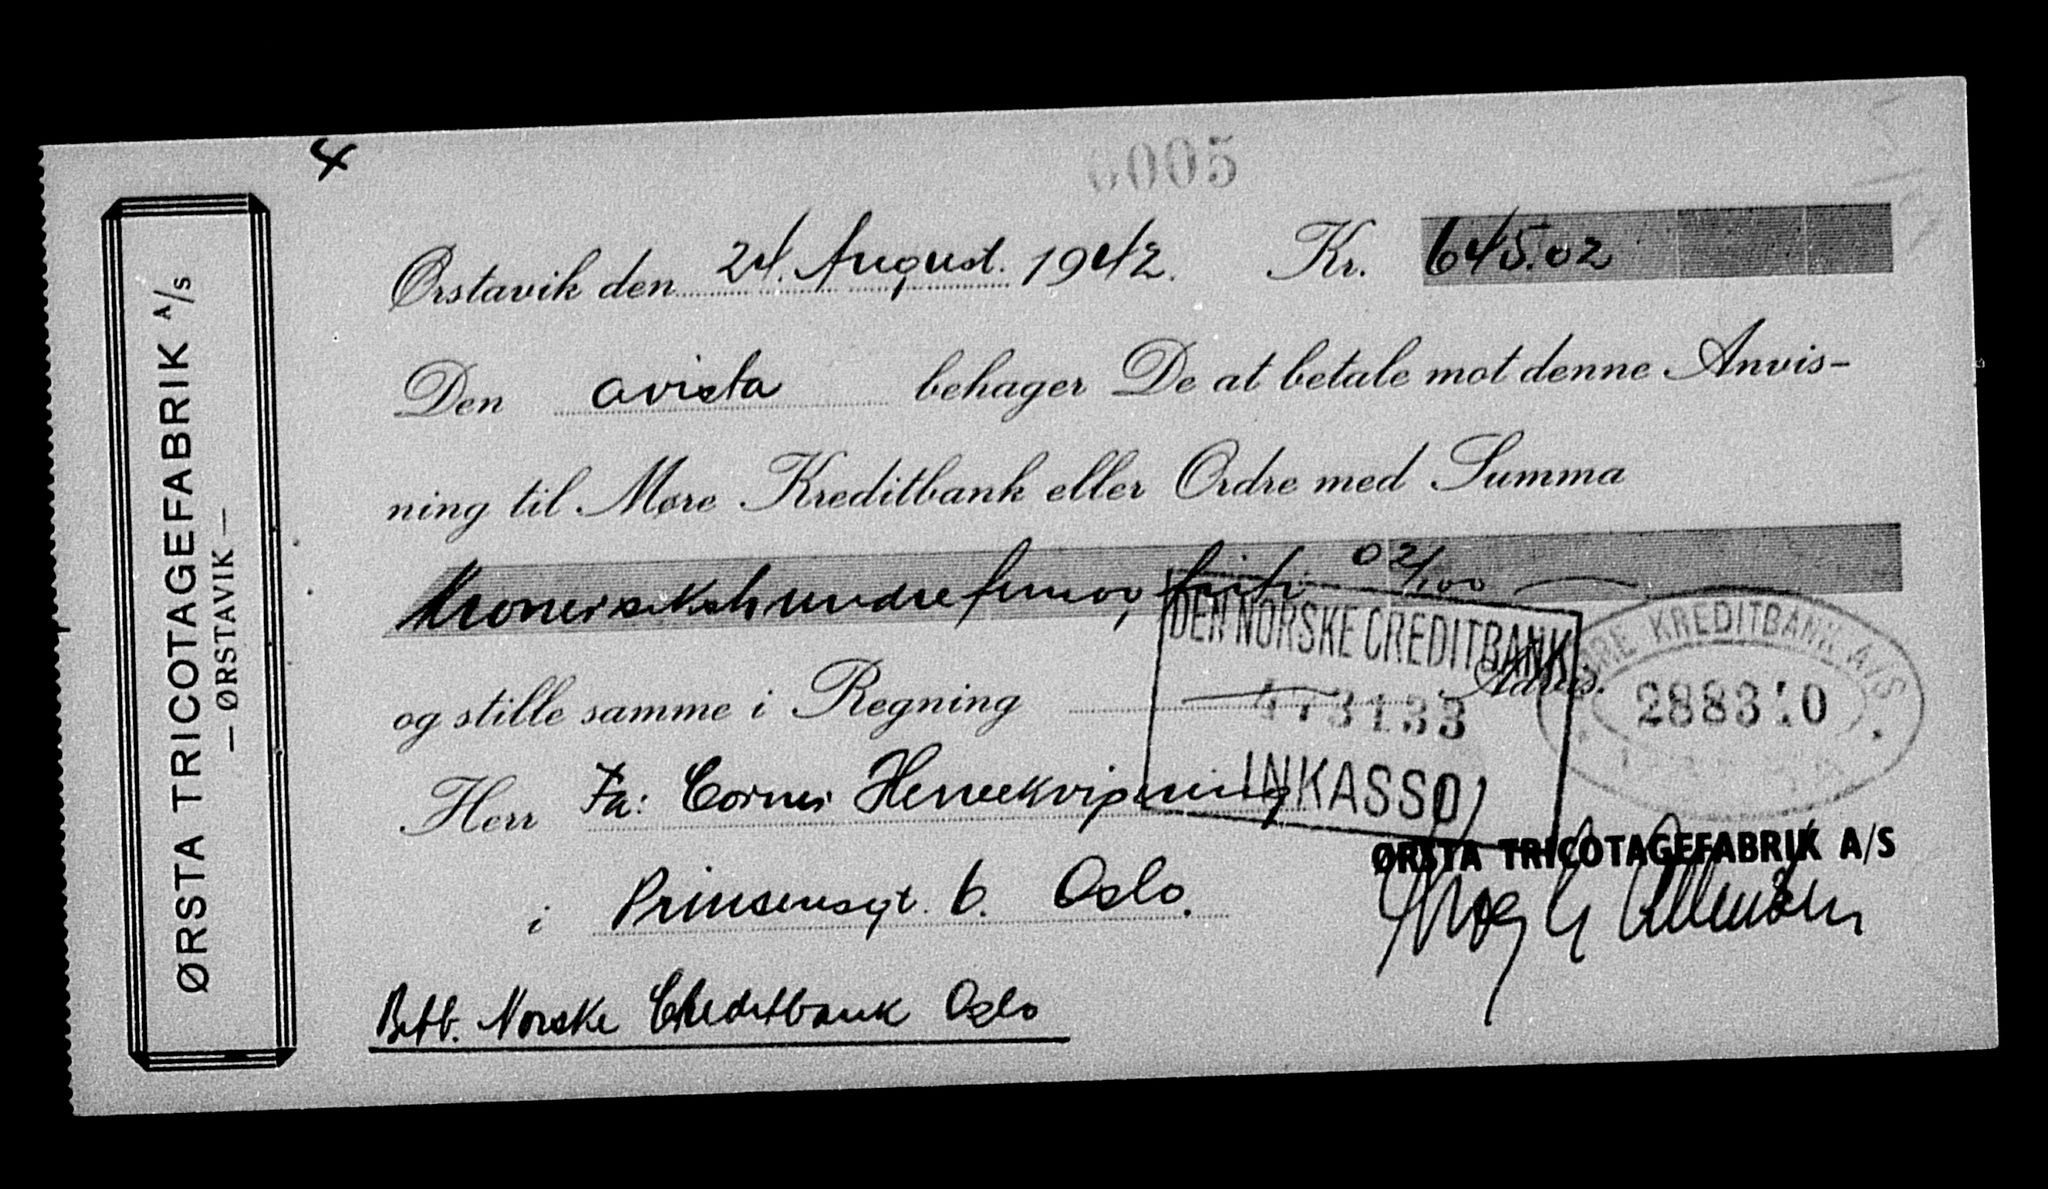 ØRSTA TRICOTAGEFABRIK A/S
— ØRSTAVIK —
4
0005
Ørstavik den 24. August. 1942. Kr. 645.02
Den avista behager De at betale mot denne Anvis-
ning til Møre Kreditbank eller Ordre med Summa
Kroner sekshundrefemogfirti 02/100
og stille samme i Regning Advis.
DEN NORSKE CREDITBANK
473133
INKASSO
MØRE KREDITBANK A/S
288310
Herr Fa: Corner Herreekvipering
i Prinsensgt. 6. Oslo.
ØRSTA TRICOTAGEFABRIK A/S
Betb. Norske Creditbank Oslo